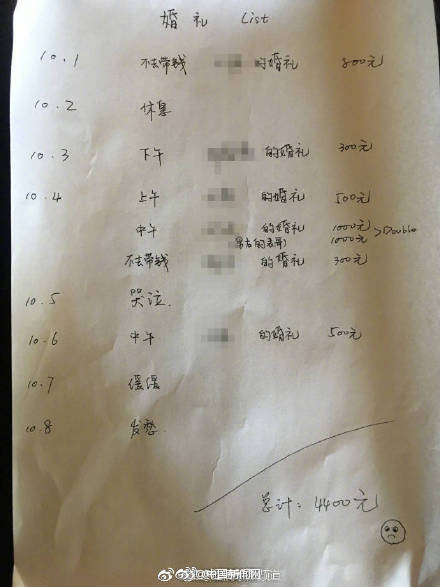 婚礼 List
10.1 不去带钱 的婚礼 800元
10.2 休息
10.3 下午 的婚礼 300元
10.4 上午 的婚礼 500元
中午 的婚礼 1000元
男友的表哥) 1000元 >Double
不去带钱 的婚礼 300元
10.5 哭泣.
10.6 中午 的婚礼 500元
10.7 缓缓
10.8 发愁.
总计: 4400元
@中国新闻网